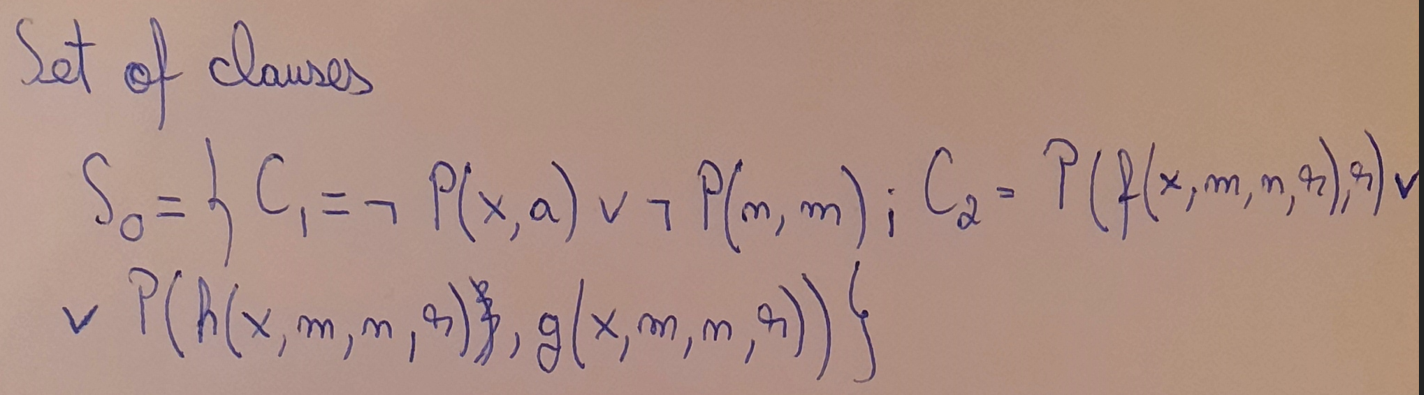 Set of clauses
S₀ = { C₁ = ¬ P(x, a) ∨ ¬ P(n, m) ; C₂ = P(f(x, m, n, r), r) ∨
∨ P(h(x, m, n, r), g(x, m, n, r)) }